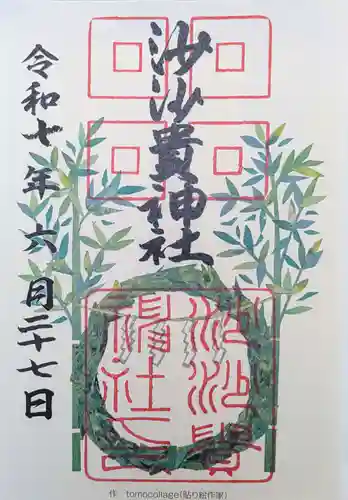 沙沙貴神社
令和七年六月二十七日
作 tomocollage(貼り絵作家)